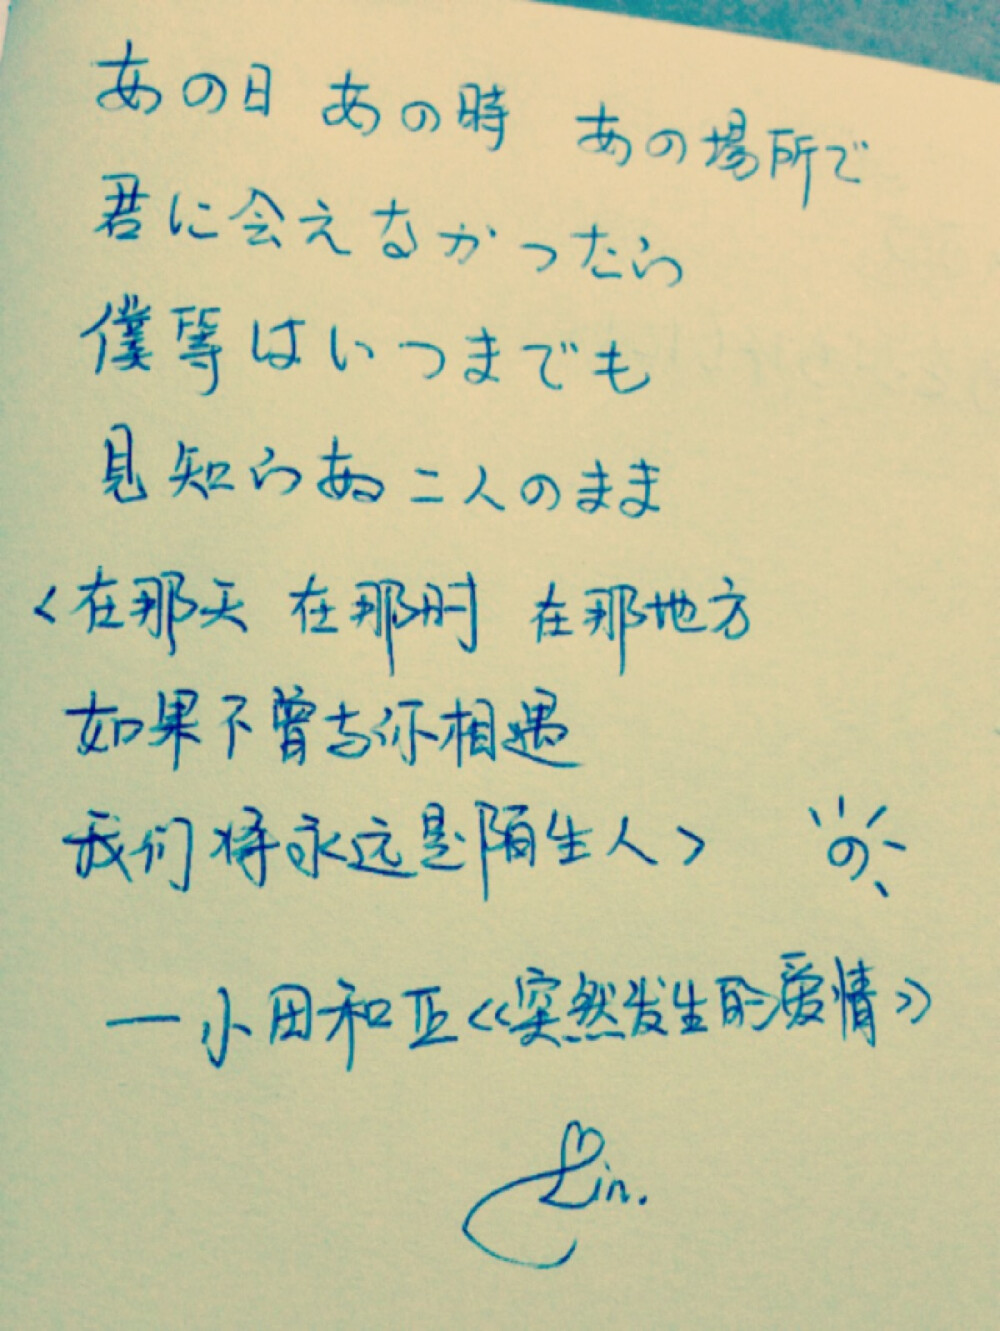 あの日 あの時 あの場所で
君に会えなかったら
僕等はいつまでも
見知らぬ二人のまま
<在那天 在那时 在那地方
如果不曾与你相遇
我们将永远是陌生人>
の
—小田和正《突然发生的爱情》
Lin.